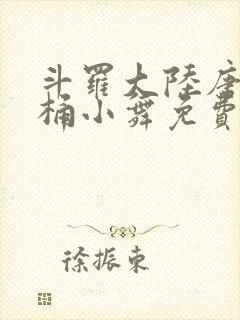 斗羅大陸唐
桶小舞免費
徐振東